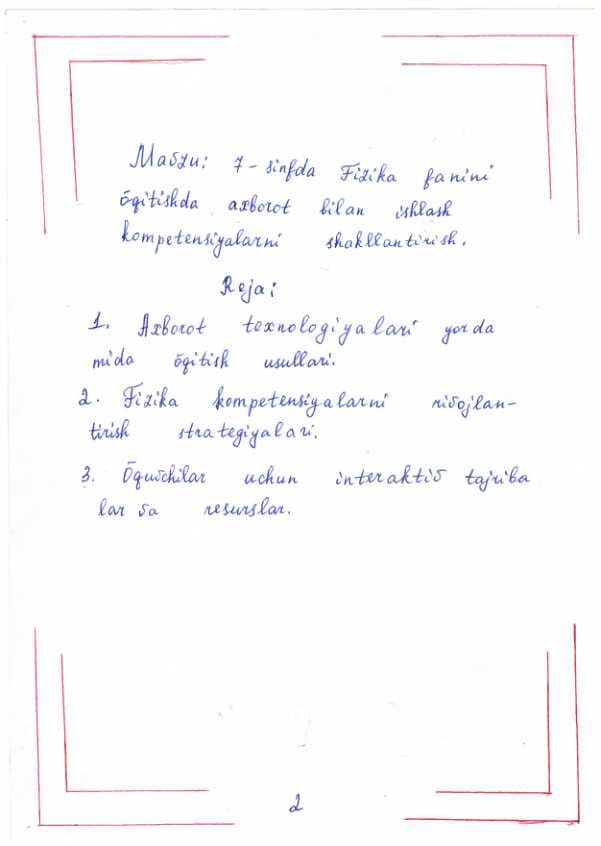 Mavzu: 7-sinfda Fizika fanini
õqitishda axborot bilan ishlash
kompetensiyalarni shakllantirish.
Reja:
1. Axborot texnologiyalari yorda
mida õqitish usullari.
2. Fizika kompetensiyalarni rivojlan-
tirish strategiyalari.
3. Õquvchilar uchun interaktiv tajriba
lar va resurslar.
2